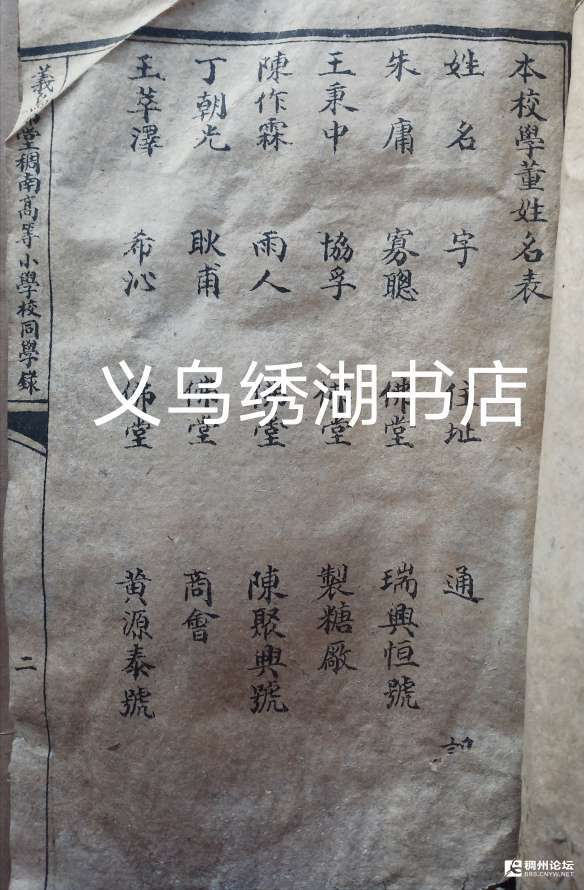 本校學董姓名表
姓名 字 住址 通
朱庸 寡聰 佛堂 瑞興恒號
王秉中 協孚 佛堂 製糖廠
陳作霖 雨人 佛堂 陳聚興號
丁朝光 耿甫 佛堂 商會
王萃澤 希沁 佛堂 黄源泰號
義
堂稠南高等小學校同學錄
二
义乌绣湖书店
稠州论坛
BBS.CNYW.NET